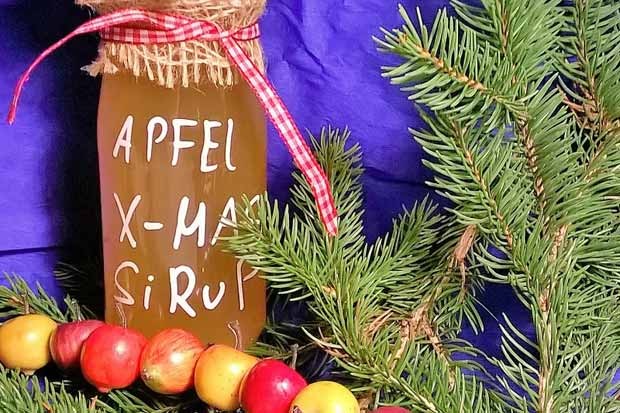 APFEL
X-MAS
SiRuP